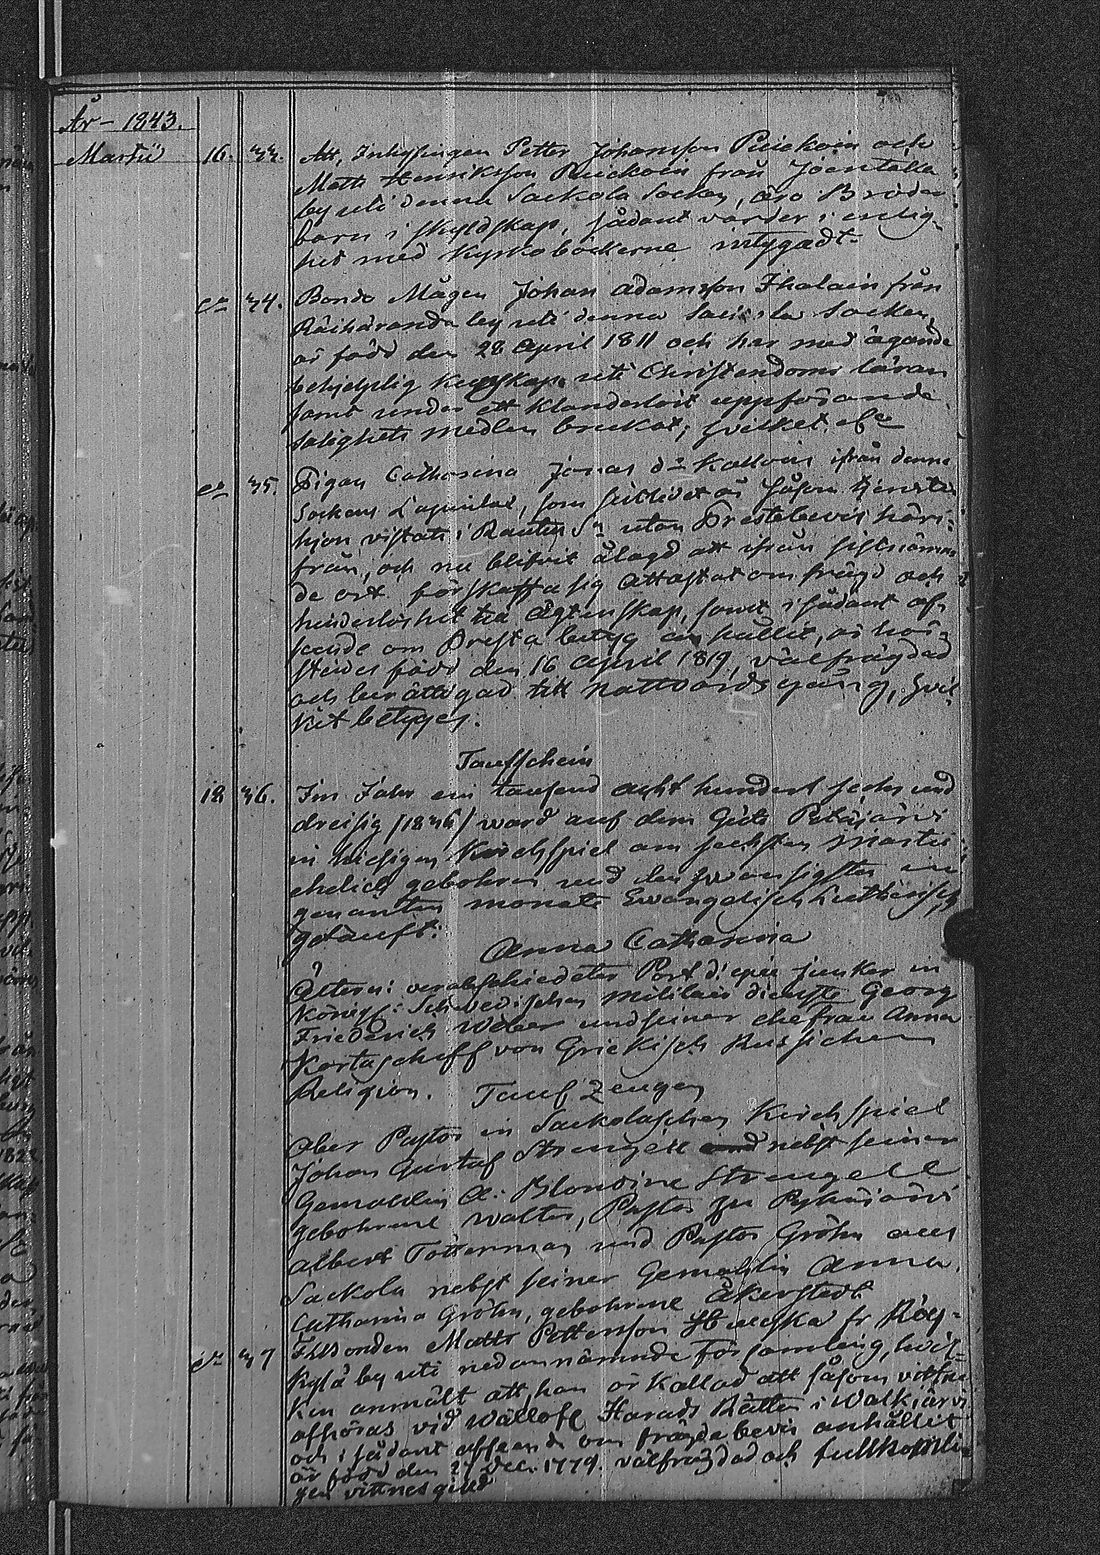 År - 1843.
Martii 16. 33. Att, Inhysingen Petter Johansson Puckoin och
Matts Henriksson Puckoin från Joentaka
by uti denna Sackola Socken, äro Bröder
barn i skyldskap, sådant varder i enlig-
het med Kyrkoböckerne intygadt.
34. Bonde Mågen Johan Adamsson Ihalain från
by uti denna Sackola Socken,
är född den 28 April 1811 och har med ägande
behjelplig kunskap uti Christendoms läran
samt under ett klanderlöst uppförande
salighets medlen brukat; hvilket
35. Pigan Catharina Jonas dr ifrån denna
Sockens som såsom tjenste
hjon vistats i Rautus Sn utan Prestebevis häri-
från, och nu blifvit ålagd att ifrån sistnämn
de ort förskaffa sig Attestat om frägd och
hinderlöshet till Ägtenskap, samt i sådant af-
seende om Presta betyg anhållit, är här-
städes född den 16 April 1819, välfrägdad
och berättigad till nattvardsgång, hvil
ket betyges.
Taufschein
18 36. Im Jahr ein tausend acht hundert sechs und
dreisig /1836/ ward auf dem Gute
in hiesigen Kirchspiel am sechsten Martii
ehelich gebohren und den zwansigsten im
genanten monate Ewangelisch Lutherisch
getauft:
Anna Catharina
Ältern: verabschiedeter Port d'epée junker in
Königl: Schwedischen militair dienste Georg
Friederich Weber und seiner ehefrau Anna
Kortascheff von Griekisch Russischen
Religion. Tauf Zeugen
Ober Pastor in Sackolaschen Kirchspiel
Johan Gustaf Strengell nebst seiner
Gemahlin A: Blondine Strengell
gebohrene Walter, Pastor zu Pyhäjärvi
Albert Tötterman und Pastor Gröhn aus
Sackola nebst seiner Gemahlin Anna
Catharina Gröhn, gebohrene Åkerstedt
37 Matts Pettersson fr Röy-
kylä by uti nedannämnde Församling, hvil-
ken anmält att han är kallad att såsom vittne
afhöras vid Wällofl Härads Rätten i Walkjärvi
och i sådant afseende om frägdebevis anhållit
är född den 27 Dec. 1779. välfrägdad och fullkomli
gen vittnesgild